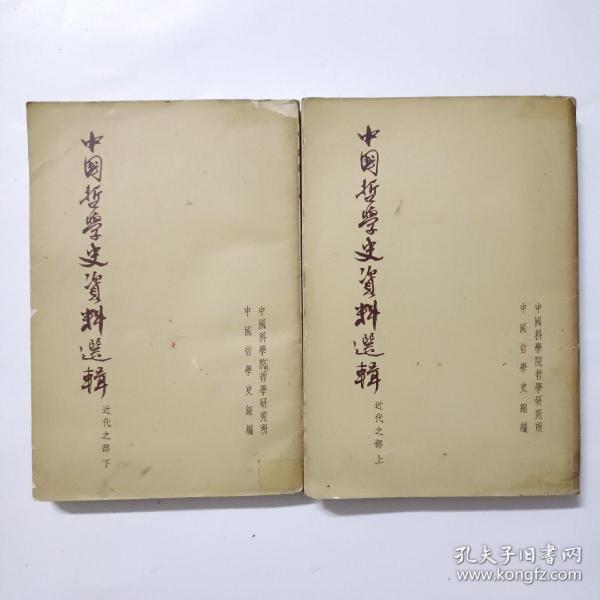 中國哲學史資料選輯
近代之部 下
中國科學院哲學研究所
中國哲學史組編
中國哲學史資料選輯
近代之部 上
中國科學院哲學研究所
中國哲學史組編
孔夫子旧书网
www.kongfz.com